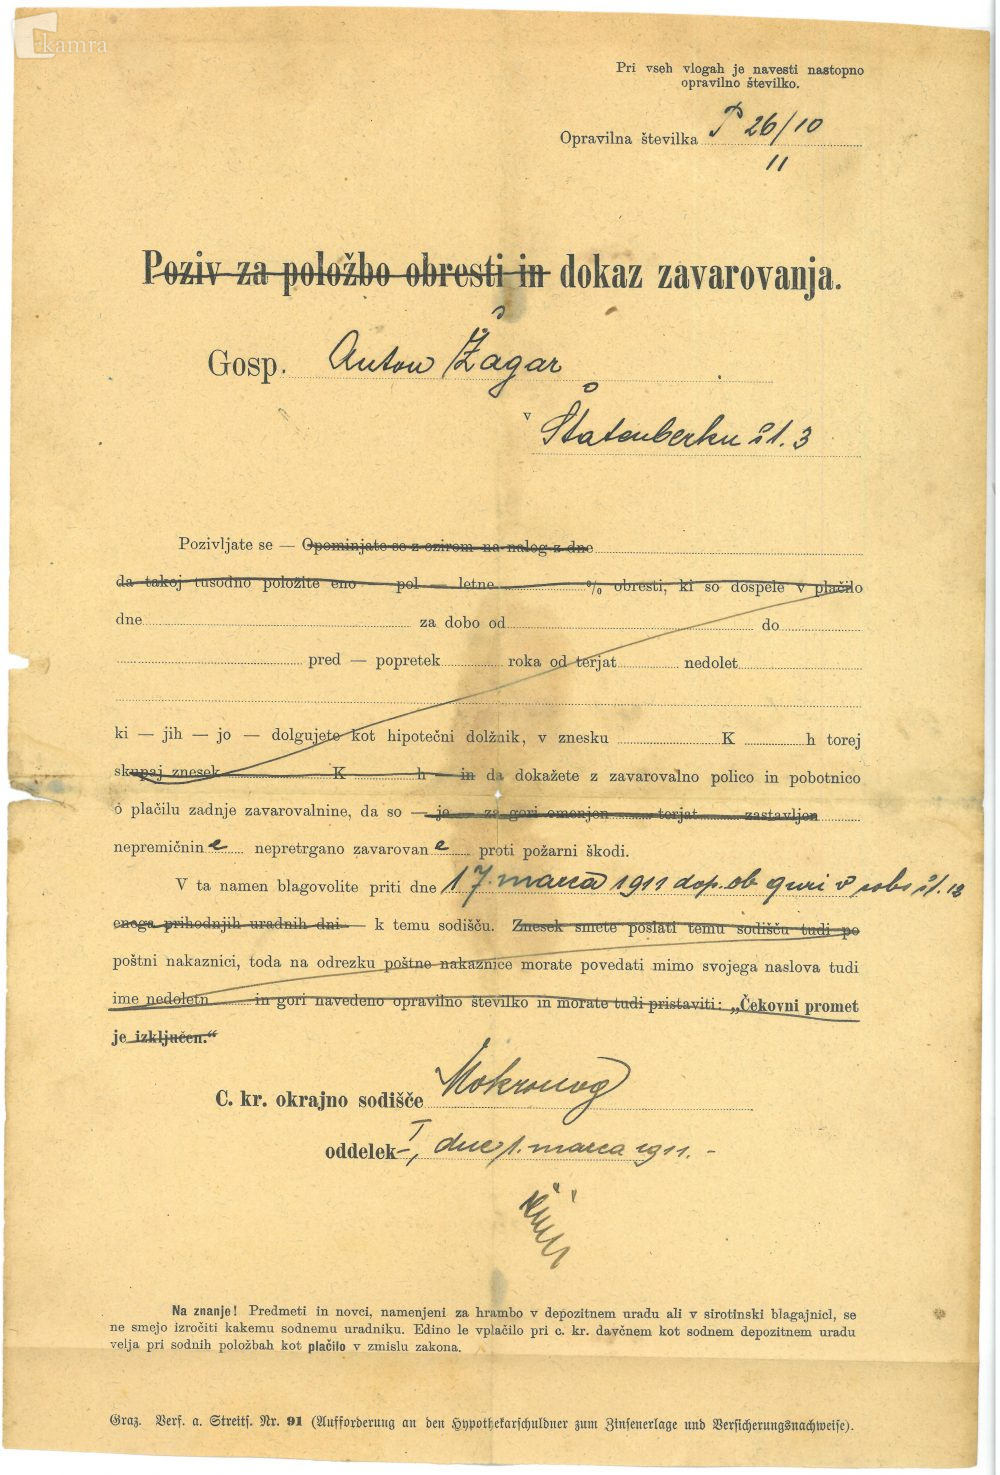 kamra
Pri vseh vlogah je navesti nastopno
opravilno številko.
Opravilna številka P 26/10
11
Poziv za položbo obresti in dokaz zavarovanja.
Gosp. Anton Žagar
v Štatenberku št. 3
Pozivljate se — Opominjate se z ozirom na nalog z dne
da takoj tusodno položite eno — pol — letne % obresti, ki so dospele v plačilo
dne za dobo od do
pred — popretek roka od terjat nedolet
ki — jih — jo — dolgujete kot hipotečni dolžnik, v znesku K h torej
skupaj znesek K h — in da dokažete z zavarovalno polico in pobotnico
o plačilu zadnje zavarovalnine, da so — je — za gori omenjen terjat zastavljen
nepremičnin e nepretrgano zavarovan e proti požarni škodi.
V ta namen blagovolite priti dne 17. marca 1911 dop. ob 9 uri v sobo št. 12
enega prihodnjih uradnih dni — k temu sodišču. Znesek smete poslati temu sodišču tudi po
poštni nakaznici, toda na odrezku poštne nakaznice morate povedati mimo svojega naslova tudi
ime nedoletn in gori navedeno opravilno številko in morate tudi pristaviti: „Čekovni promet
je izključen.“
C. kr. okrajno sodišče Mokronog
oddelek I, dne 1. marca 1911. -
Na znanje! Predmeti in novci, namenjeni za hrambo v depozitnem uradu ali v sirotinski blagajnici, se
ne smejo izročiti kakemu sodnemu uradniku. Edino le vplačilo pri c. kr. davčnem kot sodnem depozitnem uradu
velja pri sodnih položbah kot plačilo v zmislu zakona.
Graz. Verf. a. Streits. Nr. 91 (Aufforderung an den Hypothekarschuldner zum Zinsenerlage und Versicherungsnachweise).